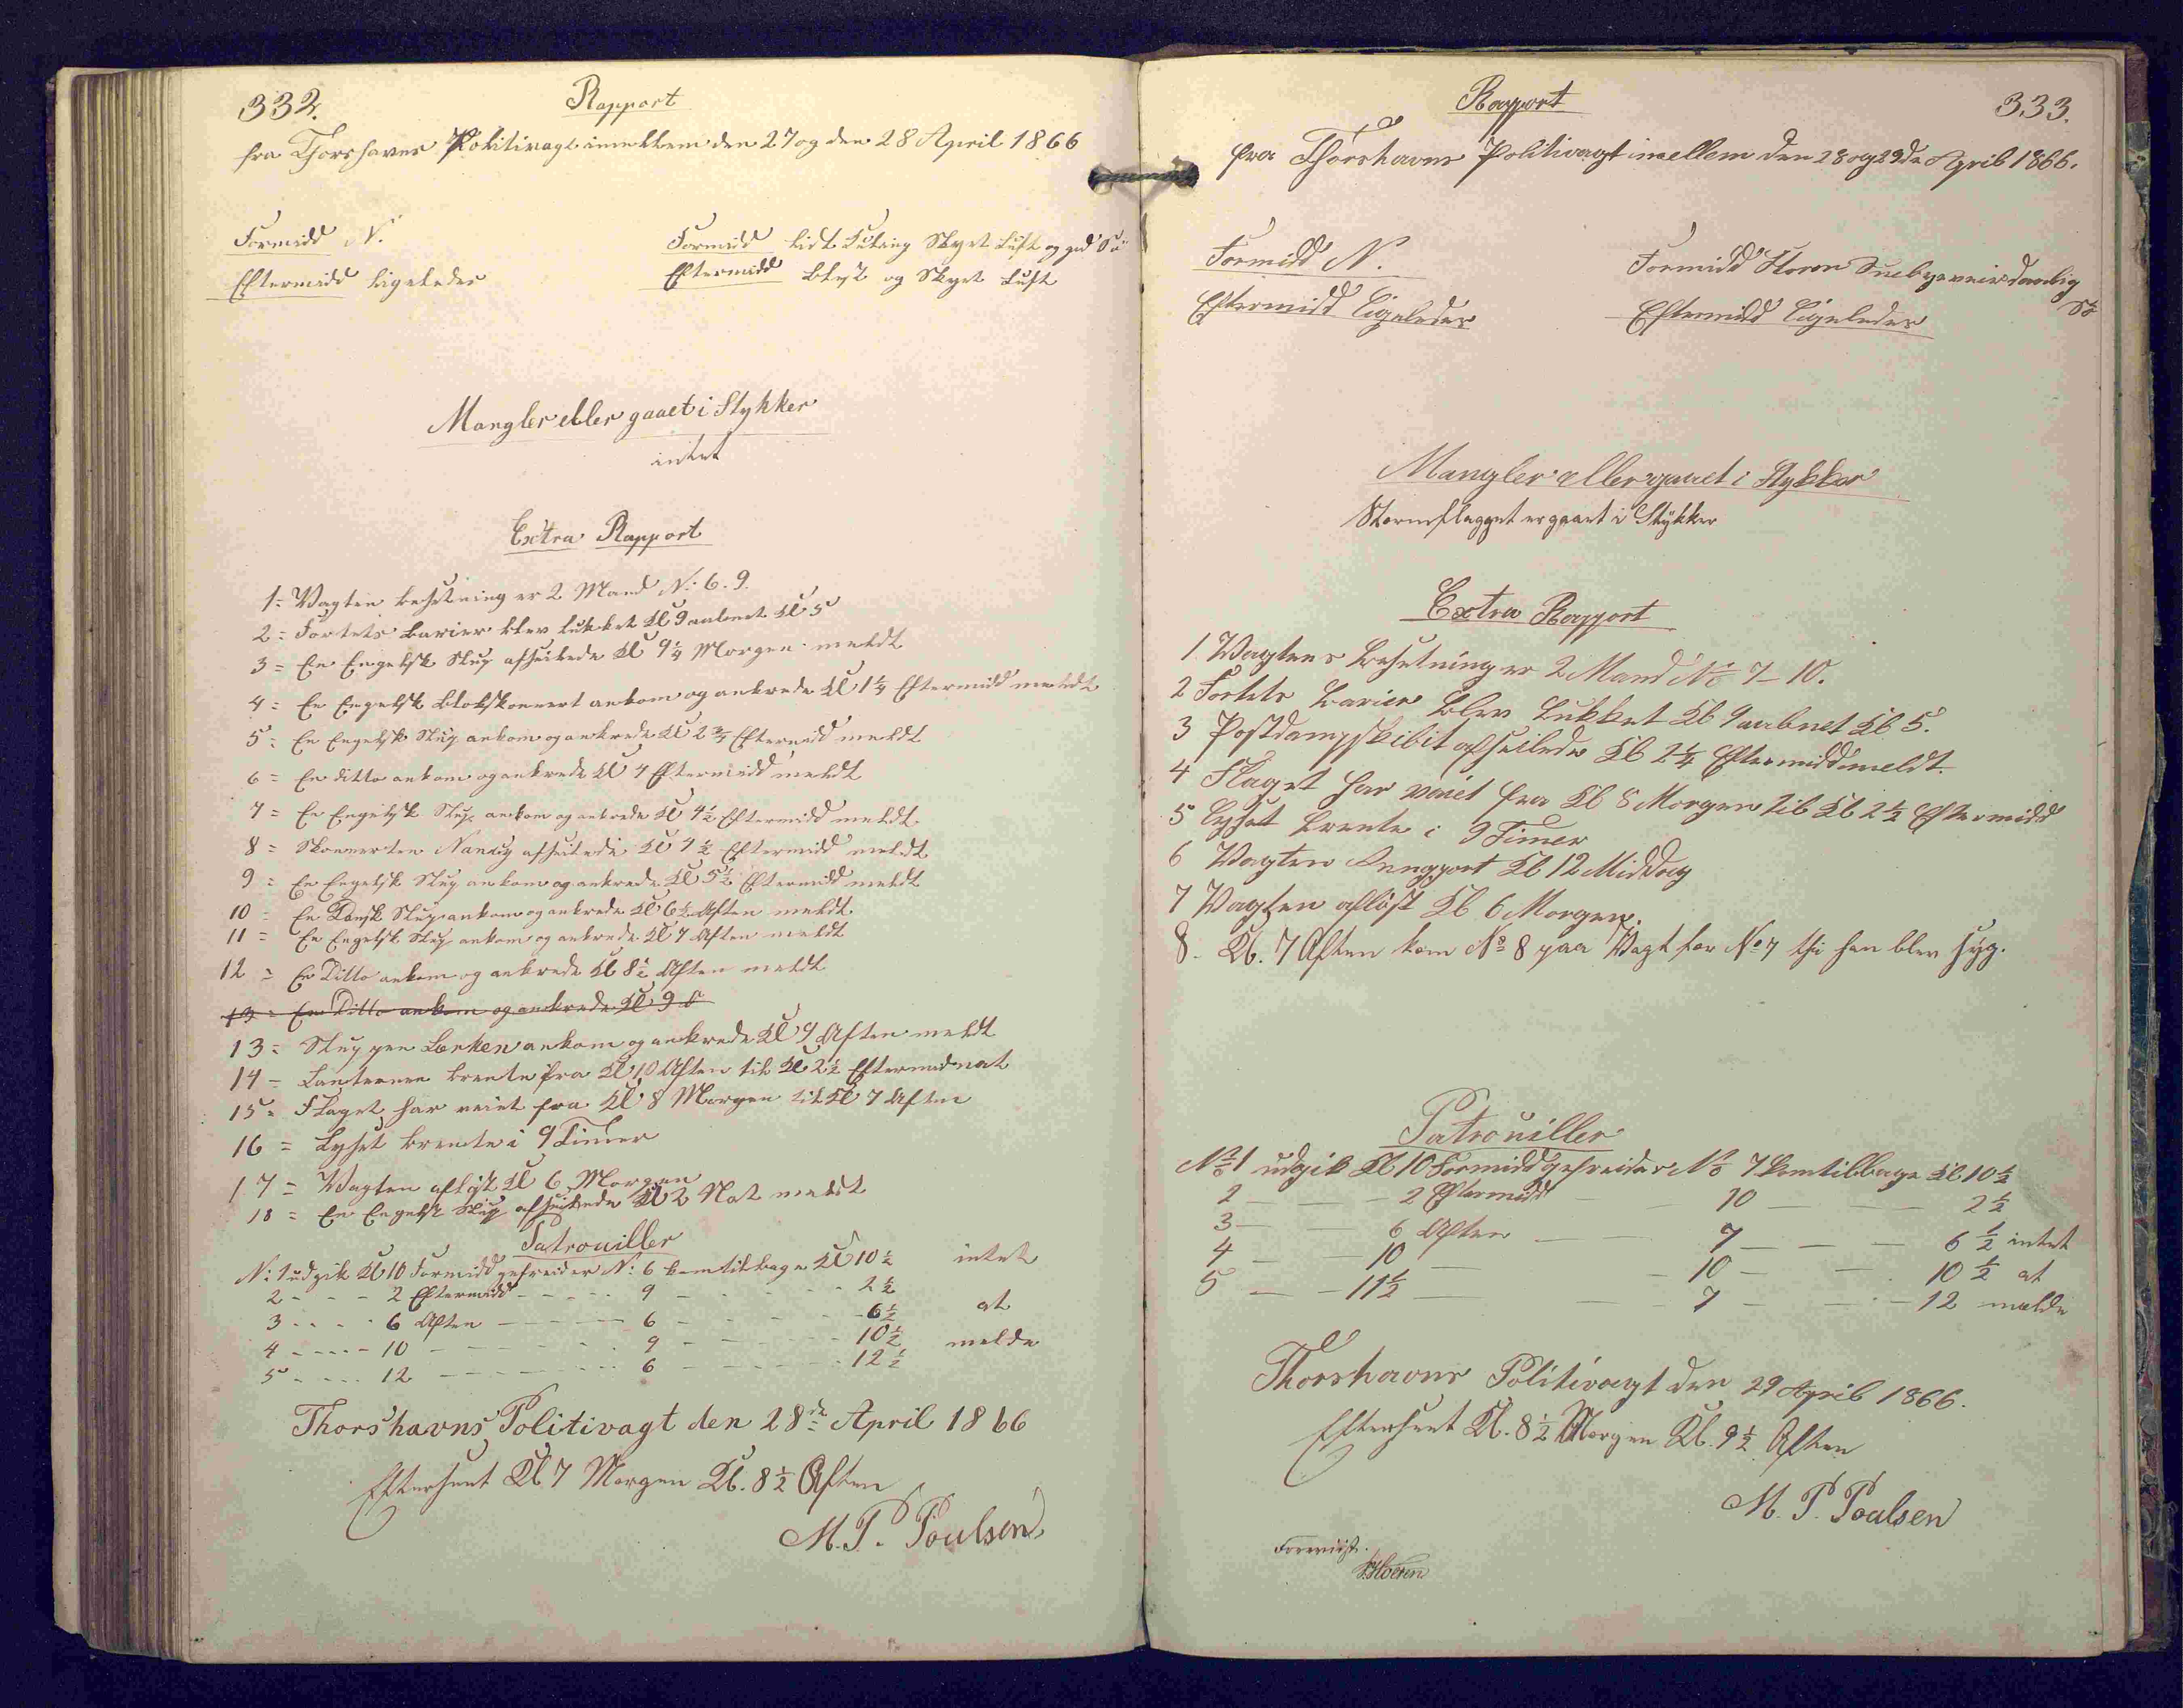 332.
Rapport
fra Thorshavns Politivagt imellem den 27 og den 28 April 1866
Formidd N.
Eftermidd ligeledes
Formidd lidt Kuling Skyet Luft og god Sö
Eftermidd Blæst og Skyet Luft
Mangler eller gaaet i Stykker
intet
Extra Rapport
1 = Vagten besetning er 2 Mand N: 6. 9.
2 = Fortets Barier blev lukket Kl 9 aabnet Kl 5
3 = En Engelsk Slup afseilede Kl 9 1/4 Morgen meldt
4 = En Engelsk Slobskonnert ankom og ankrede Kl 1 1/4 Eftermidd meldt
5 = En Engelsk Slup ankom og ankrede Kl 2 3/4 Eftermidd meldt
6 = En ditto ankom og ankrede Kl 4 Eftermidd meldt
7 = En Engelsk Slup ankom og ankrede Kl 4 1/2 Eftermidd meldt
8 = Skonnerten Nancy afseilede Kl 4 1/2 Eftermidd meldt
9 = En Engelsk Slup ankom og ankrede Kl 5 1/2 Eftermidd meldt
10 = En Dansk Slup ankom og ankrede Kl 6 1/2 Aften meldt
11 = En Engelsk Slup ankom og ankrede Kl 7 Aften meldt
12 = En Ditto ankom og ankrede Kl 8 1/2 Aften meldt
13 = En Ditto ankom og ankrede Kl 9 A
13 = Sluppen Lerken ankom og ankrede Kl 9 Aften meldt
14 = Lanternen brente fra Kl 10 Aften til Kl 2 1/2 Eftermidnat
15 = Flaget har veiet fra Kl 8 Morgen til Kl 7 Aften
16 = Lyset brente i 9 Timer
17 = Vagten aflöst Kl 6 Morgen
18 = En Engelsk Slup afseilede Kl 2 Nat meldt
Patrouiller
N: 1 udgik Kl 10 Formidd gefreider N: 6 kom tilbage Kl 10 1/2 intet
2 - - - 2 Eftermidd - - - - 9 - - - - - 2 1/2
3 - - - 6 Aften - - - - 6 - - - - - 6 1/2 at
4 - - - 10 - - - - 9 - - - - - 10 1/2 melde
5 - - - 12 - - - - 6 - - - - - 12 1/2
Thorshavns Politivagt den 28de April 1866
Efterseet Kl 7 Morgen Kl. 8 1/2 Aften
M. P. Poulsen
333.
Rapport
fra Thorshavns Politivagt imellem den 28 og 29de April 1866.
Formidd N.
Eftermidd Ligeledes
Formidd Storm Snebygeveir daarlig Sö
Eftermidd Ligeledes
Mangler eller gaaet i Stykker
Stormflagget er gaaet i Stykker
Extra Rapport
1 Vagtens besetning er 2 Mand No 7 - 10.
2 Fortets Barier blev Lukket Kl 9 aabnet Kl 5.
3 Postdampskibit afseilede Kl 2 1/4 Eftermidd meldt.
4 Flaget har veiet fra Kl 8 Morgen til Kl 2 1/2 Eftermidd
5 Lyset brente i 9 Timer
6 Vagten Kl 12 Middag
7 Vagten aflöst Kl 6 Morgen.
8. Kl. 7 Aften kom No 8 paa Vagt for No 7 thi han blev syg.
Patrouiller
No 1 udgik Kl 10 Formidd gefreider No 7 kom tilbage Kl 10 1/2
2 — — 2 Eftermidd — — 10 — — — 2 1/2
3 — — 6 Aften — — 7 — — — 6 1/2 intet
4 — — 10 — — 10 — — 10 1/2 at
5 — — 11 1/2 — — 7 — — 12 melde
Thorshavns Politivagt den 29 April 1866.
Efterseet Kl. 8 1/2 Morgen Kl. 9 1/2 Aften
M. P. Poulsen
Foreviist.